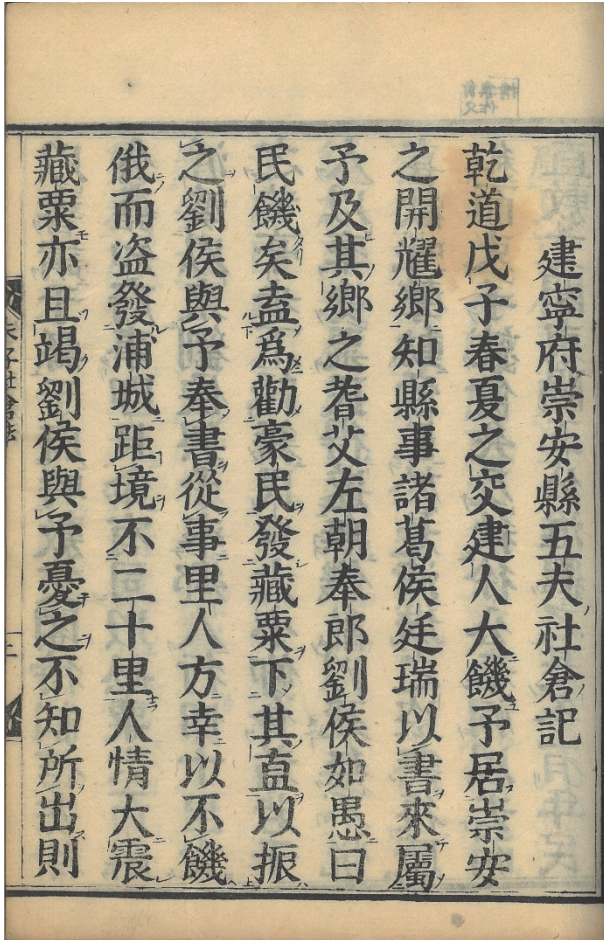 建寧府崇安縣五夫社倉記
乾道戊子春夏之交建人大饑予居崇安
之開耀鄉知縣事諸葛侯廷瑞以書來屬
予及其鄉之耆艾左朝奉郎劉侯如愚曰
民饑矣盍爲勸豪民發藏粟下其直以振
之劉侯與予奉書從事里人方幸以不饑
俄而盗發浦城距境不二十里人情大震
藏粟亦且竭劉侯與予憂之不知所出則